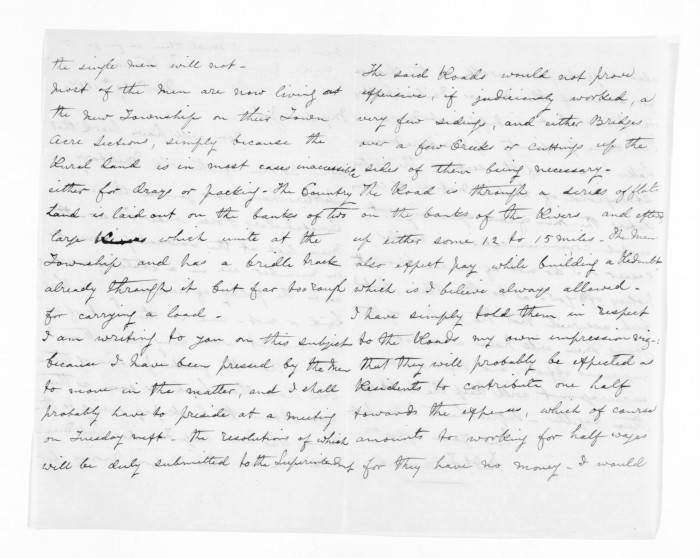 the single men will not -
Most of the Men are now living at
the New Township on their Town
Acre Sections, simply because the
Rural Land is in most cases inaccessible
either for drays or packing - The Country
Land is laid out on the banks of two
large Rivers which unite at the
Township and has a bridle track
already through it but far too rough
for carrying a load -
I am writing to you on this subject
because I have been pressed by the Men
to move in the matter, and I shall
probably have to preside at a meeting
on Tuesday next - the resolutions of which
will be duly submitted to the Superintendent
The said Roads would not prove
expensive, if judiciously worked, a
very few sidings, and either Bridges
over a few Creeks or cuttings up the
sides of them being necessary -
The Road is through a series of flats
on the banks of the Rivers, and extends
up either some 12 to 15 miles - The Men
also expect pay while building a Redoubt
which is I believe always allowed -
I have simply told them in respect
to the Roads my own impression viz:
that they will probably be expected as
Residents to contribute one half
towards the expenses, which of course
amounts to working for half wages
for they have no money - I would